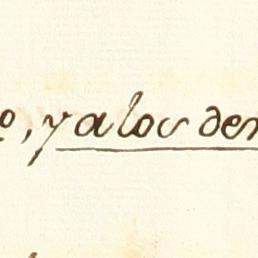 o, y alos den